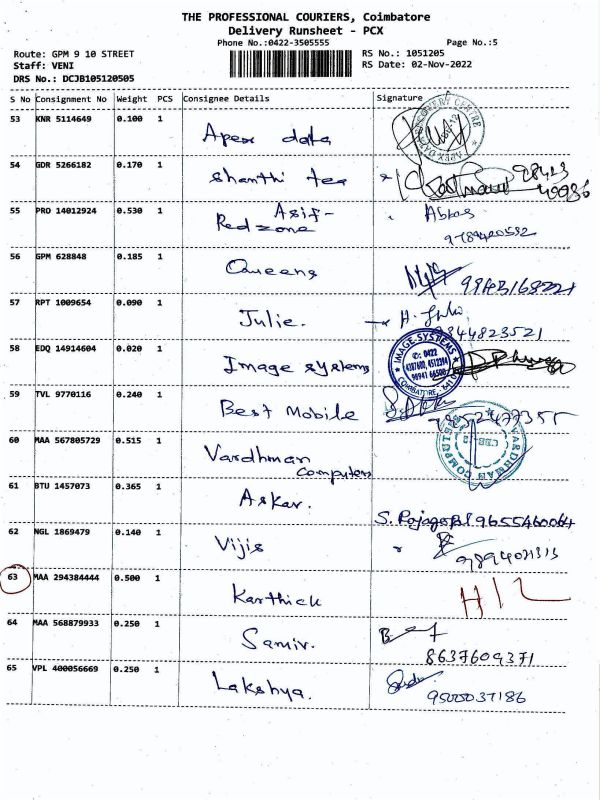 THE PROFESSIONAL COURIERS, Coimbatore
Delivery Runsheet - PCX
Phone No.:0422-3505555
Page No.:5
Route: GPM 9 10 STREET
RS No.: 1051205
Staff: VENI
RS Date: 02-Nov-2022
DRS No.: DCJB105120505
S No Consignment No Weight PCS Consignee Details Signature
53 KNR 5114649 0.100 1
Apex data
54 GDR 5266182 0.170 1
Shanthi tea
55 PRO 14012924 0.530 1
Asif-
Redzone
Abbas
9789420532
56 GPM 628848 0.185 1
Queens
57 RPT 1009654 0.090 1
Julie.
9844823521
58 EDQ 14914604 0.020 1
Image systems
IMAGE SYSTEMS
0422
COIMBATORE
59 TVL 9770116 0.240 1
Best Mobile
60 MAA 567805729 0.515 1
Vardhman
Computers
VARDHMAN COMPUTERS
61 BTU 1457073 0.365 1
Askar.
9655460064
62 NGL 1869479 0.140 1
Vijis
9894021313
63 MAA 294384444 0.500 1
Karthick
H/L
64 MAA 568879933 0.250 1
Samir.
8637609371
65 VPL 400056669 0.250 1
Lakshya.
9500037186